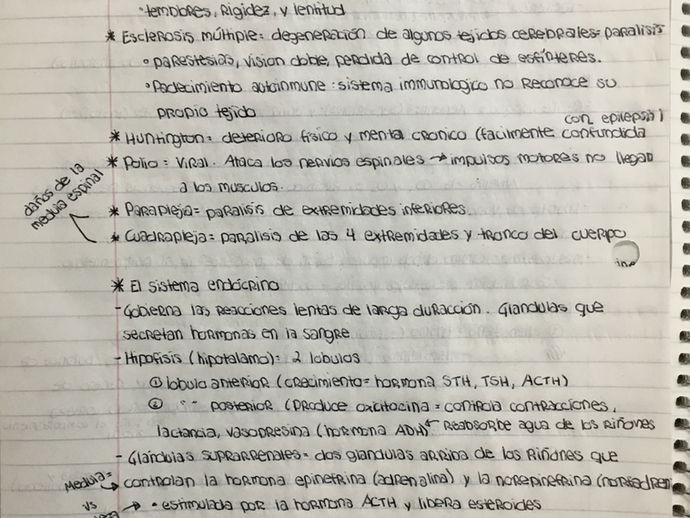 • temblores, rigidez, y lentitud
* Esclerosis múltiple: degeneración de algunos tejidos cerebrales = paralisis
° parestesias, vision doble, perdida de control de esfínteres.
° Padecimiento autoinmune: sistema immunologico no reconoce su
propio tejido
con epilepsia)
* Huntington = deterioro físico y mental cronico (facilmente confundida
* Polio = viral. Ataca los nervios espinales → impulsos motores no llegan
a los musculos.
daños de la
medula espinal
* Parapleja = paralisis de extremidades inferiores.
* Cuadrapleja = paralisis de las 4 extremidades y tronco del cuerpo
* El sistema endócrino
- Gobierna las reacciones lentas de larga duracción. Glandulas que
secretan hormonas en la sangre
- Hipofisis (hipotalamo) = 2 lobulos
① lobulo anterior (crecimiento = hormona STH, TSH, ACTH)
② " posterior (produce oxcitocina = controla contracciones,
lactancia, vasopresina (hormona ADH) ← Reabsorbe agua de los riñones
- Glandulas suprarrenales = dos glandulas arriba de los riñones que
Medula = → controlan la hormona epinefrina (adrenalina) y la norepinefrina
vs → • estimulada por la hormona ACTH y libera esteroides